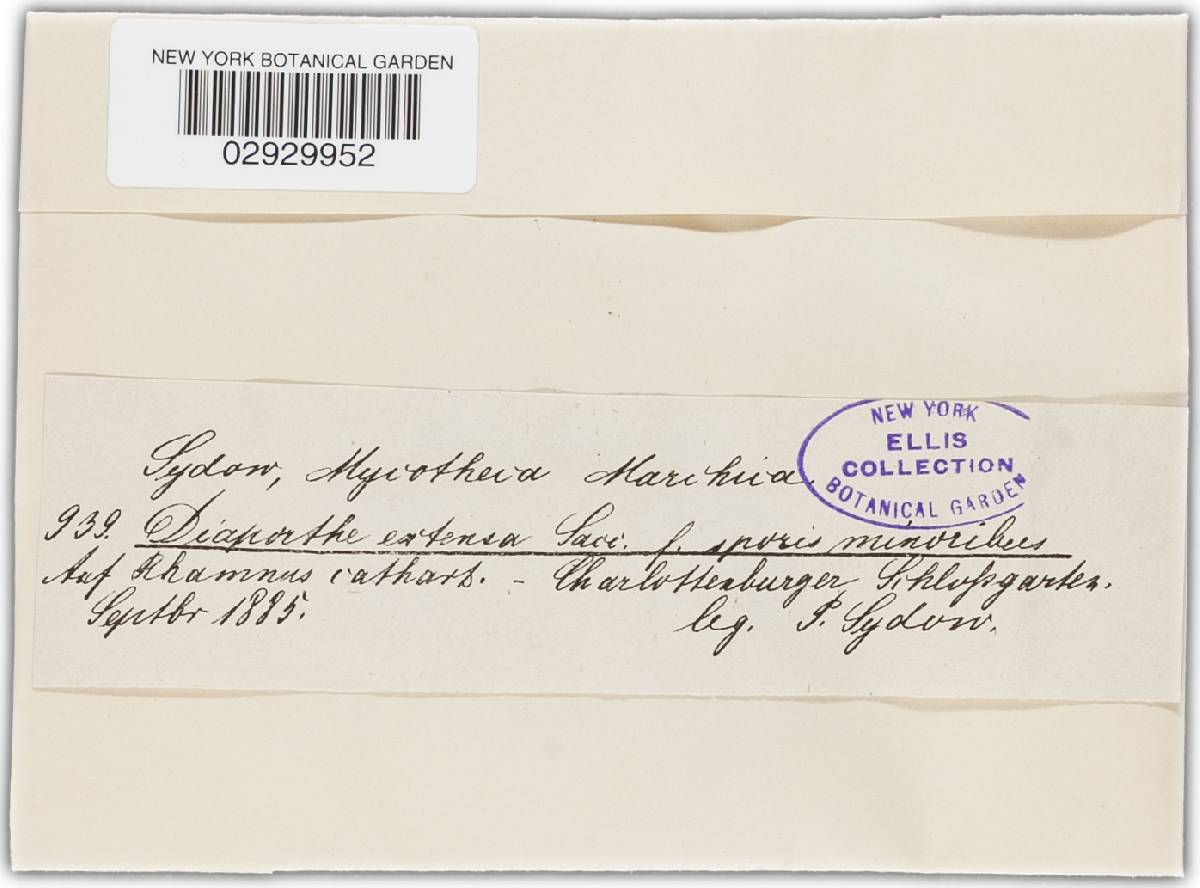 NEW YORK BOTANICAL GARDEN
02929952
NEW YORK
ELLIS
COLLECTION
BOTANICAL GARDEN
Sydow, Mycotheca Marchica.
939. Diaporthe extensa Sacc. f. sporis minoribus
Auf Rhamnus cathart. - Charlottenburger Schloßgarten.
Septbr 1885.
leg. P. Sydow.